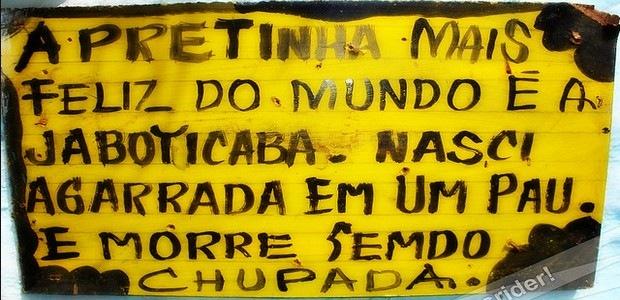 A PRETINHA MAIS
FELIZ DO MUNDO É A
JABOTICABA. NASCI
AGARRADA EM UM PAU.
E MORRE SEMDO
CHUPADA.
rider!